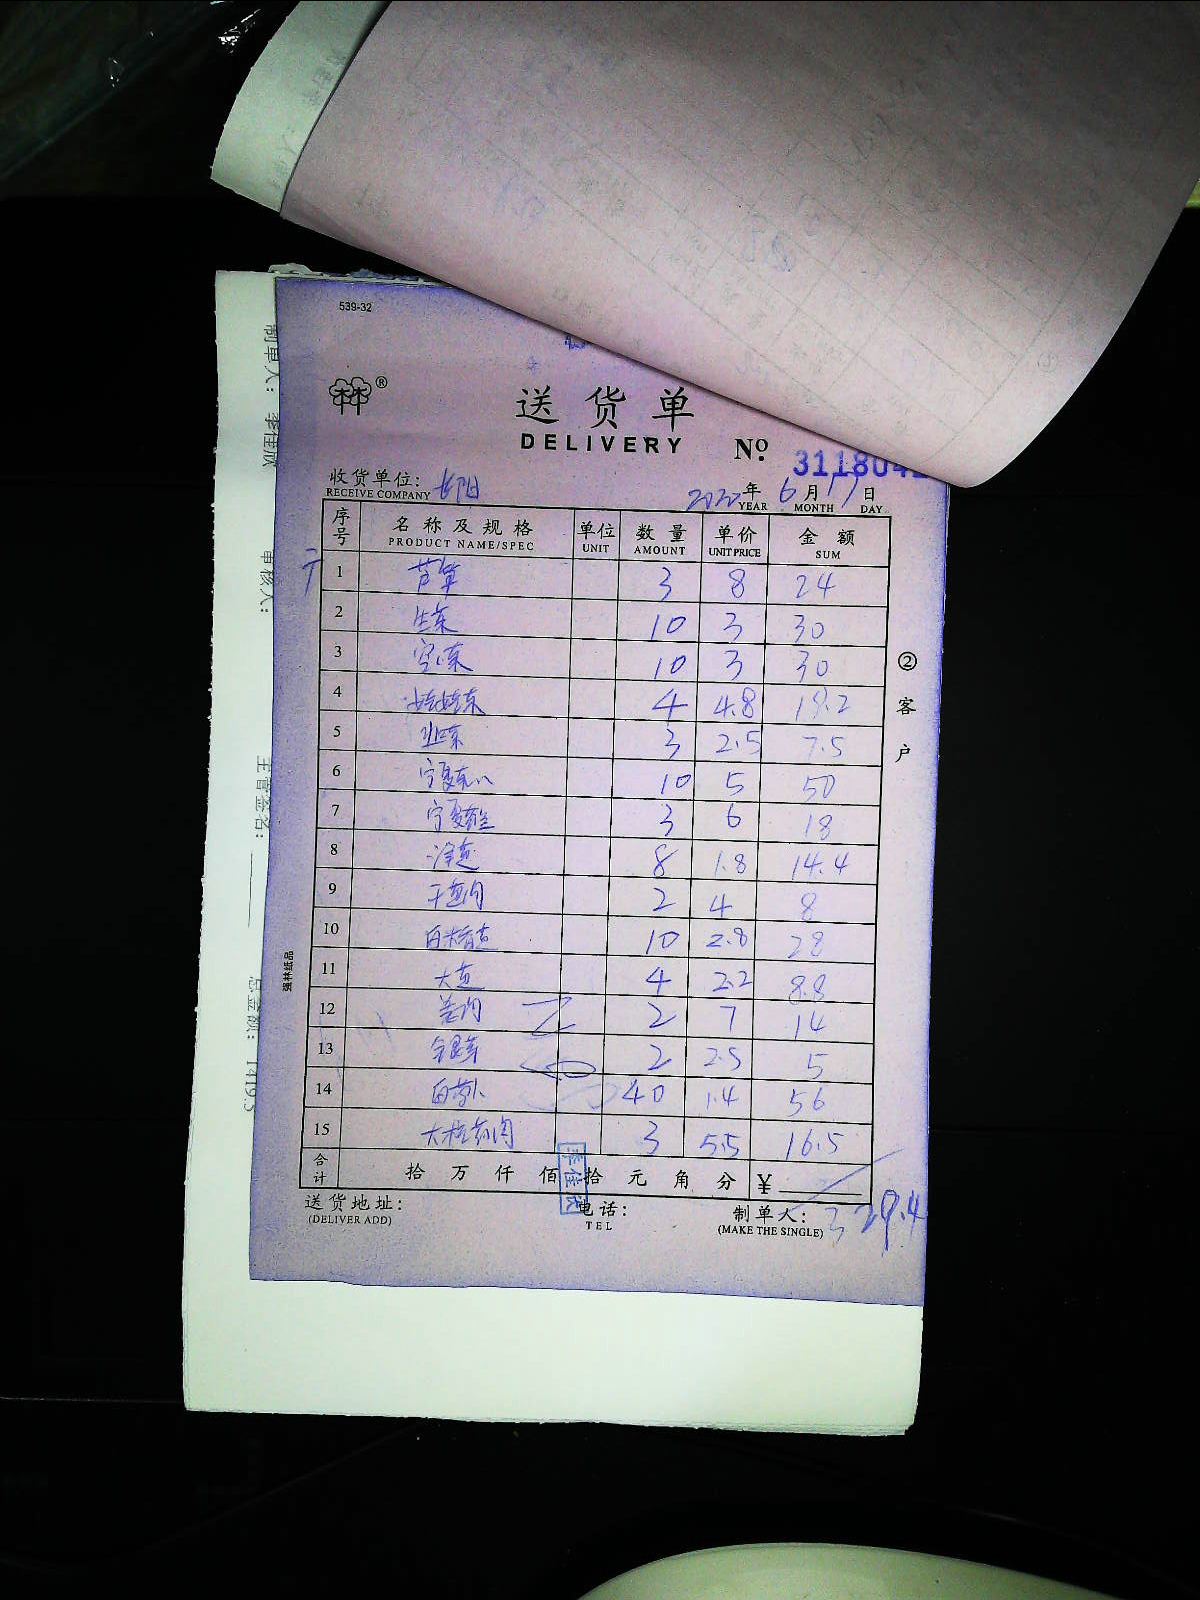 539-32
®
送货单
DELIVERY Nº
收货单位:
RECEIVE COMPANY
2020年 6月 17日
YEAR MONTH DAY
序号 名称及规格 单位 数量 单价 金额
PRODUCT NAME/SPEC UNIT AMOUNT UNIT PRICE SUM
1 芦笋 3 8 24
2 生菜 10 3 30
3 空心菜 10 3 30
4 娃娃菜 4 4.8 19.2
5 韭菜 3 2.5 7.5
6 宁夏菜心 10 5 50
7 宁夏 3 6 18
8 8 1.8 14.4
9 干葱肉 2 4 8
10 10 2.8 28
11 大葱 4 2.2 8.8
12 姜肉 2 7 14
13 2 2.5 5
14 白萝卜 40 1.4 56
15 3 5.5 16.5
合计 拾 万 仟 佰 拾 元 角 分 ¥
329.4
送货地址: 电话: 制单人:
(DELIVER ADD) TEL (MAKE THE SINGLE)
李佳欣
②客户
强林纸品
制单人: 李佳欣
审核人:
主管签名:
总金额: 1419.5